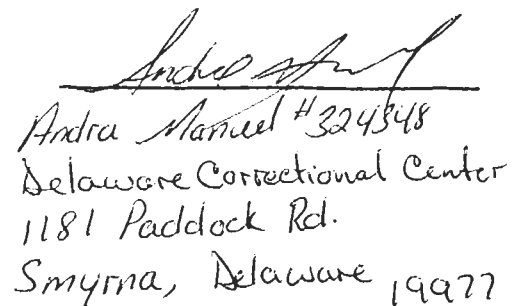 Andra Manuel #324348
Delaware Correctional Center
1181 Paddock Rd.
Smyrna, Delaware 19977